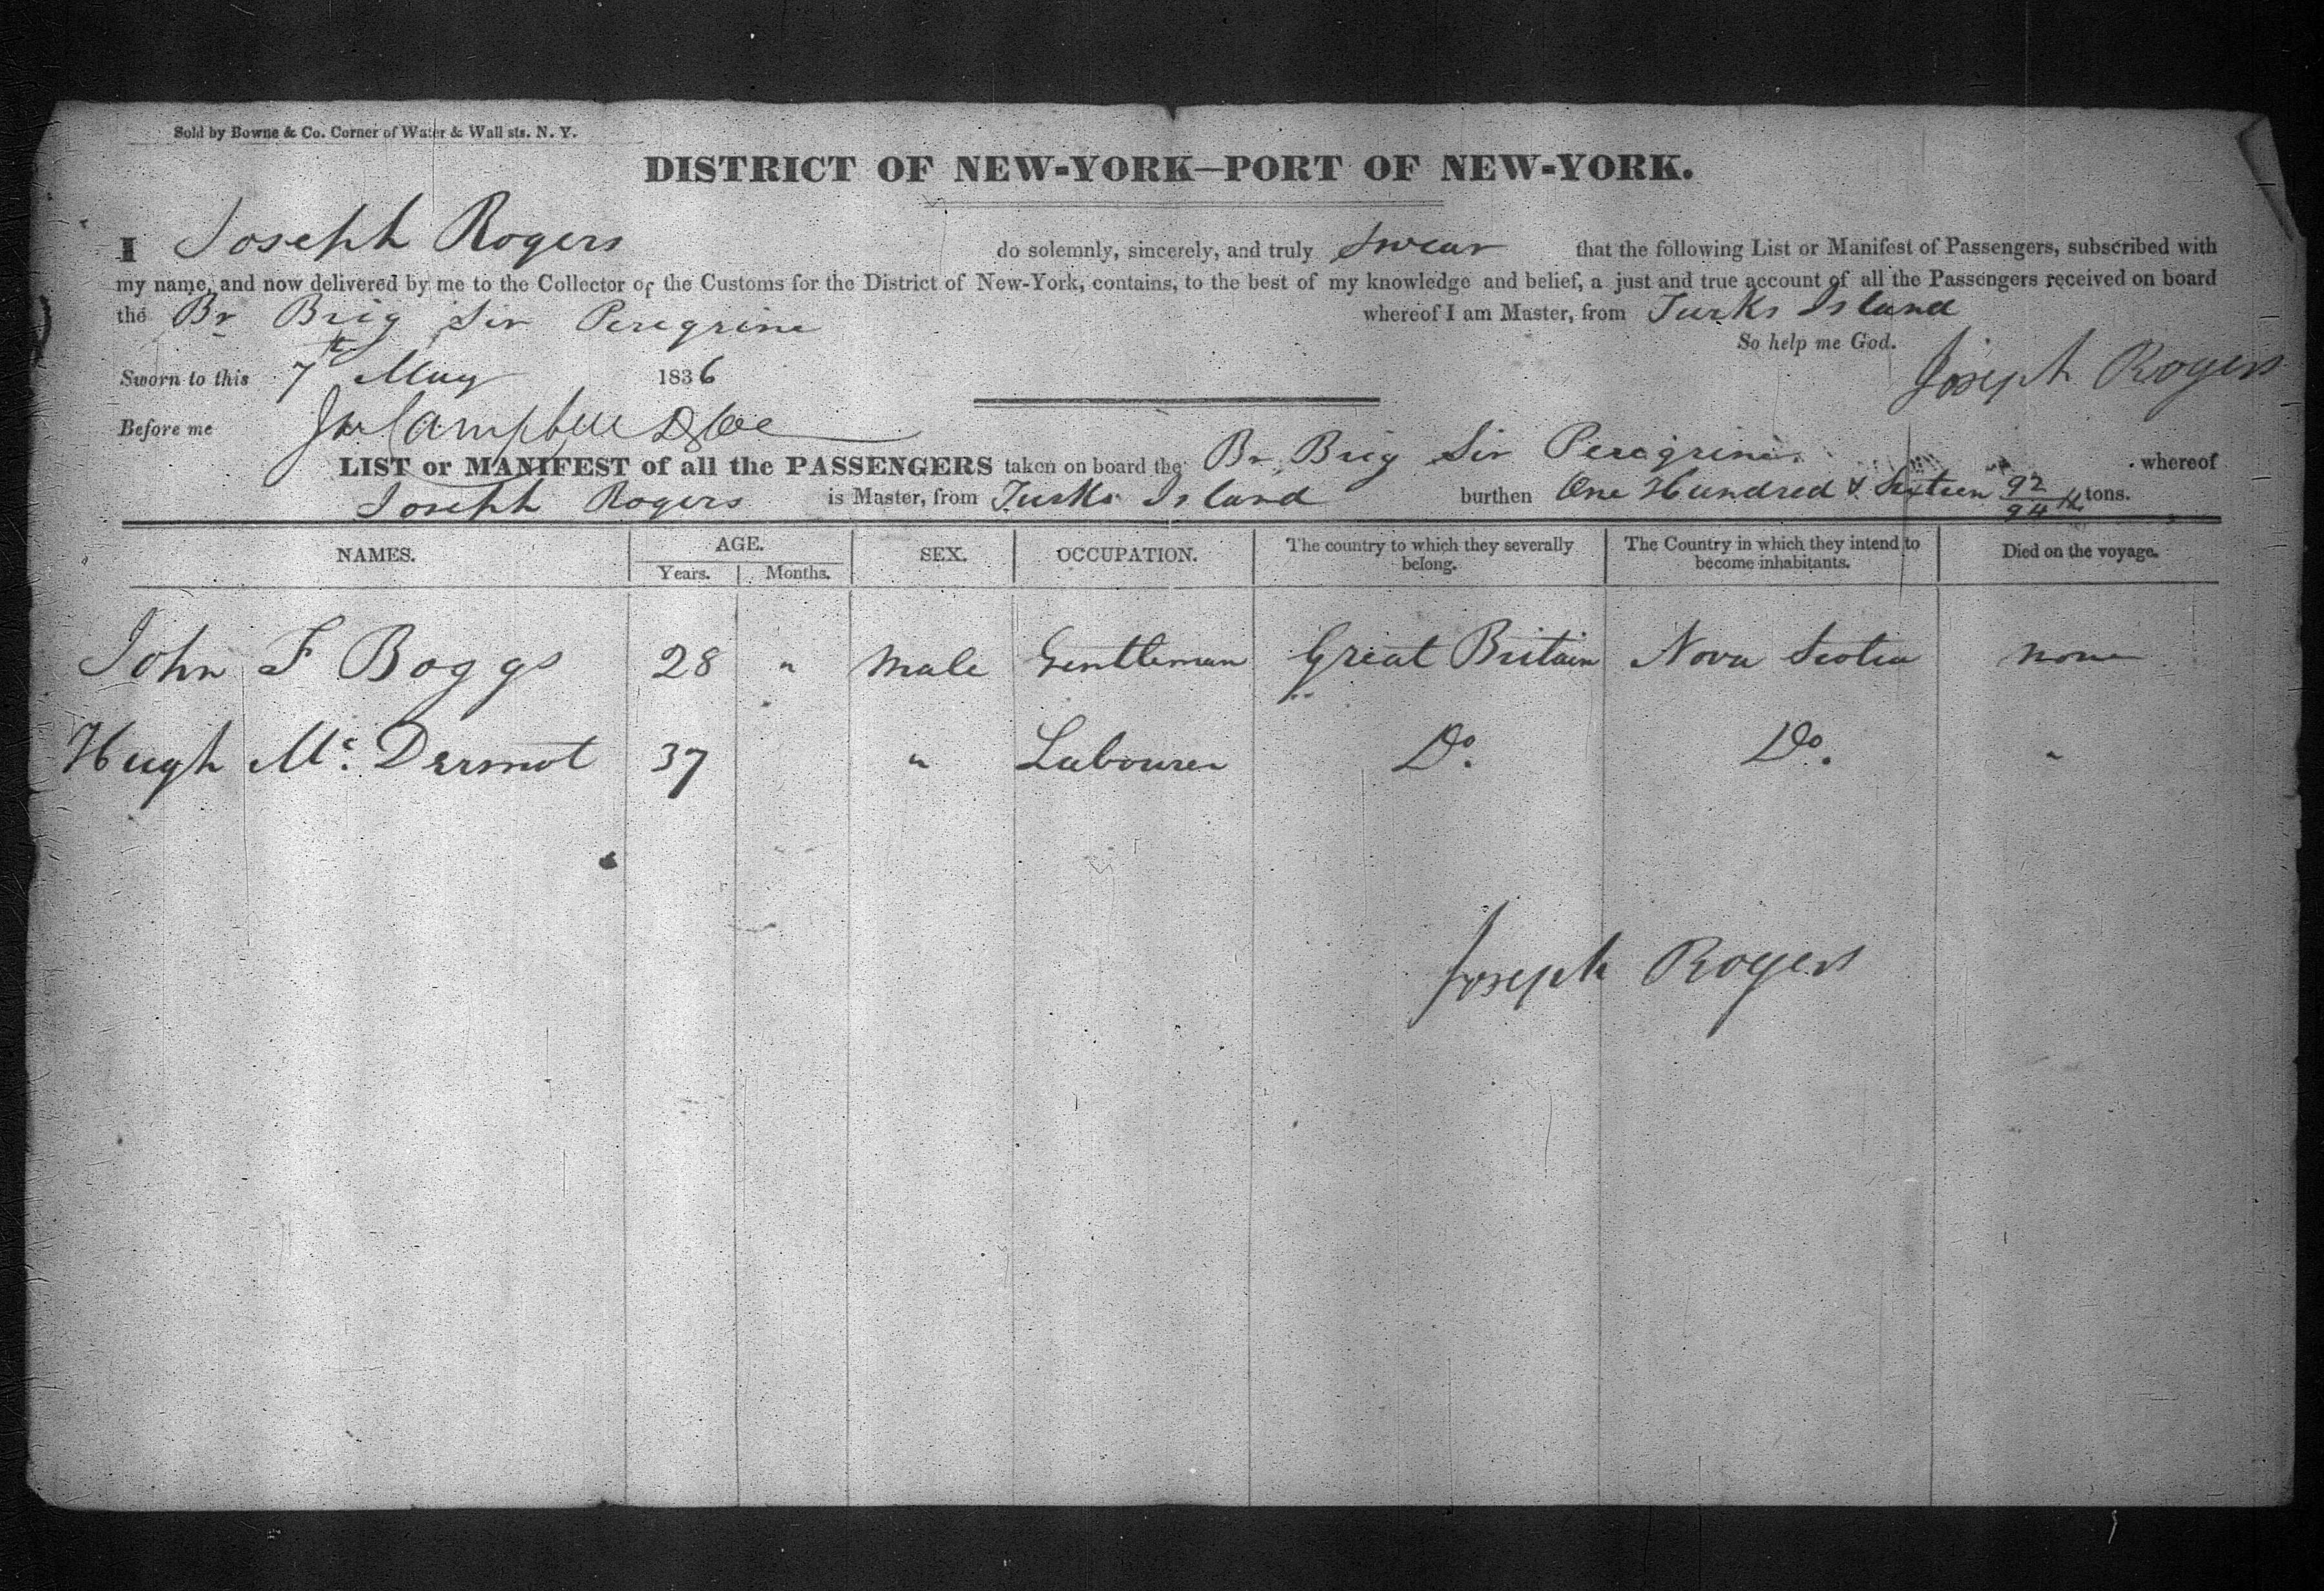 Sold by Bowne & Co. Corner of Water & Wall sts. N. Y.
DISTRICT OF NEW-YORK—PORT OF NEW-YORK.
I Joseph Rogers do solemnly, sincerely, and truly Swear that the following List or Manifest of Passengers, subscribed with
my name, and now delivered by me to the Collector of the Customs for the District of New-York, contains, to the best of my knowledge and belief, a just and true account of all the Passengers received on board
the Br Brig Sir Peregrine whereof I am Master, from Turks Island
So help me God.
Sworn to this 7th May 1836 Joseph Rogers
Before me Campbell
LIST or MANIFEST of all the PASSENGERS taken on board the Br Brig Sir Peregrine whereof
Joseph Rogers is Master, from Turks Island burthen One Hundred & Sixteen 92/94th tons.
NAMES. AGE. Years. Months. SEX. OCCUPATION. The country to which they severally belong. The Country in which they intend to become inhabitants. Died on the voyage.
John F Boggs 28 " Male Gentleman Great Britain Nova Scotia none
Hugh Mc. Dermot 37 " Labourer Do. Do. "
Joseph Rogers